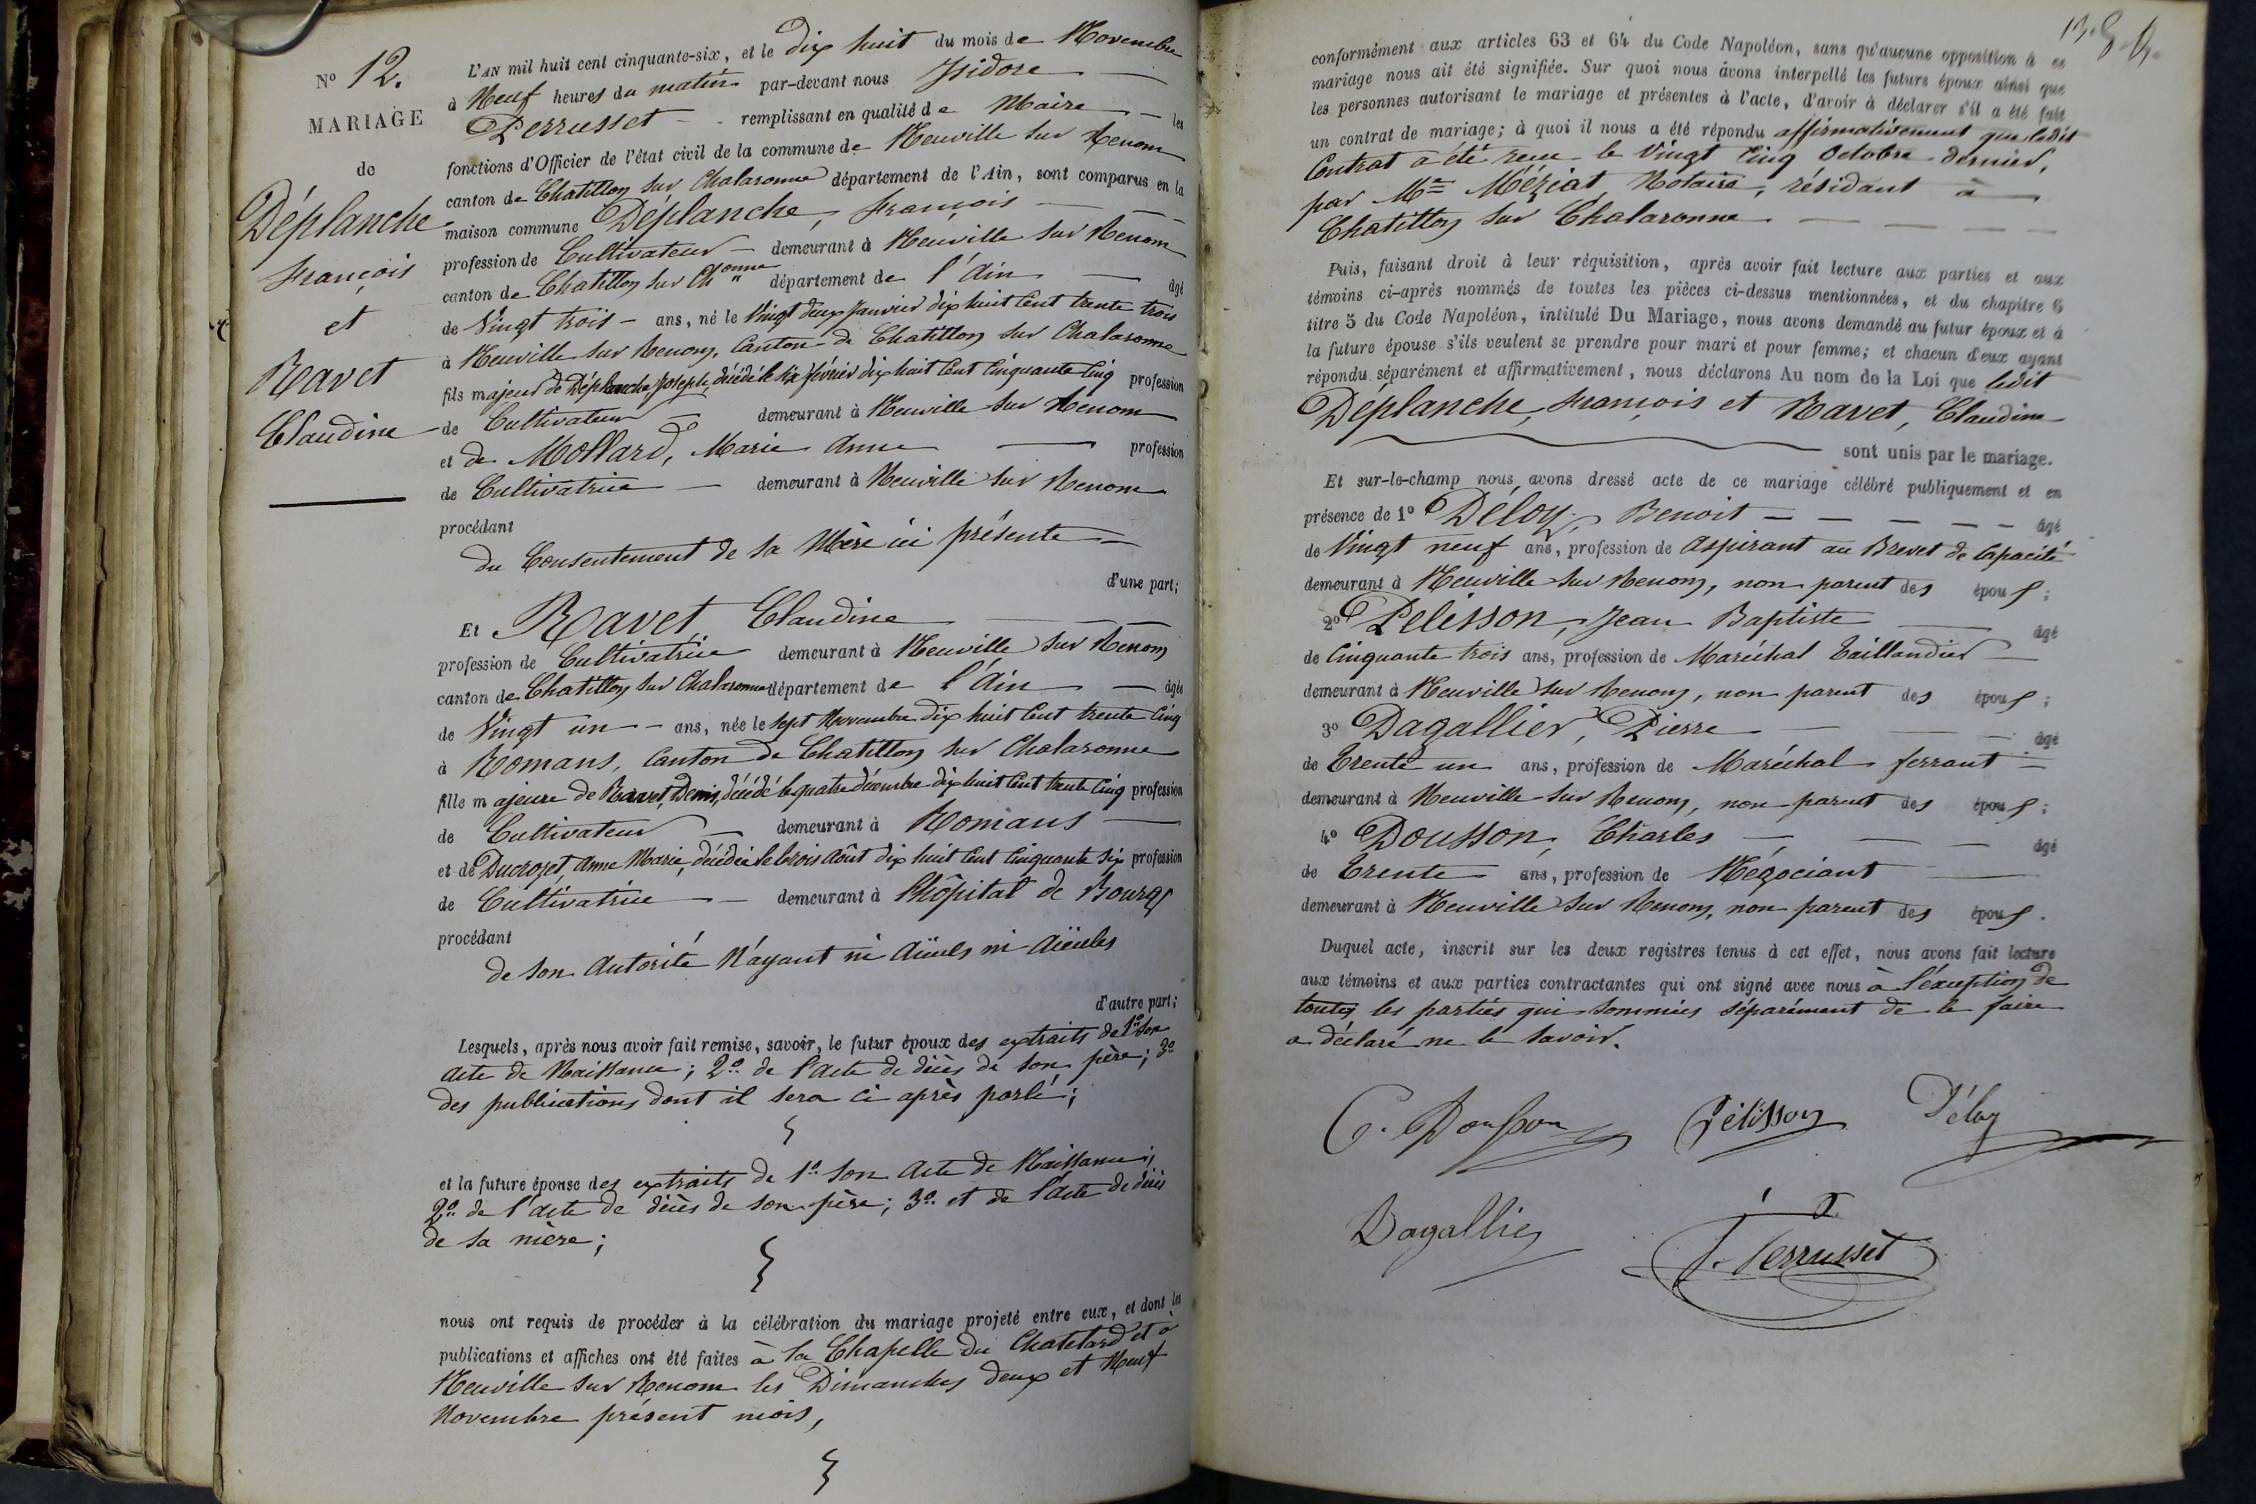 N° 12.
MARIAGE
de
Déplanche
François
et
Ravet
Claudine
L'AN mil huit cent cinquante-six, et le dix huit du mois de Novembre
à Neuf heures du matin par-devant nous Isidore
Perrusset remplissant en qualité de Maire les
fonctions d'Officier de l'état civil de la commune de Neuville sur Renom
canton de Chatillon sur Chalaronne département de l'Ain, sont comparus en la
maison commune Déplanche, François
profession de Cultivateur demeurant à Neuville sur Renom
canton de Chatillon sur Ch onne département de l'Ain âgé
de Vingt trois ans, né le Vingt deux Janvier dix huit Cent trente trois
à Neuville sur Renom, Canton de Chatillon sur Chalaronne
fils majeur de Déplanche Joseph, décédé le six février dix huit Cent Cinquante Cinq profession
de Cultivateur demeurant à Neuville sur Renom
et de Mollard, Marie Anne profession
de Cultivatrice demeurant à Neuville sur Renom
procédant
du Consentement de sa Mère ici présente
d'une part;
Et Ravet Claudine
profession de Cultivatrice demeurant à Neuville sur Renom
canton de Chatillon sur Chalaronne département de l'Ain âgée
de Vingt un ans, née le sept Novembre dix huit Cent trente Cinq
à Romans, Canton de Chatillon sur Chalaronne
fille majeure de Ravet, Denis, décédé le quatre décembre dix huit Cent trente Cinq profession
de Cultivateur demeurant à Romans
et de Ducrozet, Anne Marie, décédée le trois Août dix huit Cent Cinquante Six profession
de Cultivatrice demeurant à l'hôpital de Bourg
procédant
de son Autorité N'ayant ni Aïeuls ni Aïeules
d'autre part;
Lesquels, après nous avoir fait remise, savoir, le futur époux des extraits de 1° son
acte de Naissance; 2° de l'acte de décès de son père; 3°
des publications dont il sera ci après parlé;
et la future épouse des extraits de 1° son acte de Naissance;
2° de l'acte de décès de son père; 3° et de l'acte de décès
de sa mère;
nous ont requis de procéder à la célébration du mariage projeté entre eux, et dont les
publications et affiches ont été faites à la Chapelle du Chatelard et à
Neuville sur Renom les Dimanches deux et Neuf
Novembre présent mois,
conformément aux articles 63 et 64 du Code Napoléon, sans qu'aucune opposition à ce
mariage nous ait été signifiée. Sur quoi nous avons interpellé les futurs époux ainsi que
les personnes autorisant le mariage et présentes à l'acte, d'avoir à déclarer s'il a été fait
un contrat de mariage; à quoi il nous a été répondu affirmativement que ledit
Contrat a été reçu le Vingt Cinq Octobre dernier,
par Me Méziat Notaire, résidant à
Chatillon sur Chalaronne
Puis, faisant droit à leur réquisition, après avoir fait lecture aux parties et aux
témoins ci-après nommés de toutes les pièces ci-dessus mentionnées, et du chapitre 6
titre 5 du Code Napoléon, intitulé Du Mariage, nous avons demandé au futur époux et à
la future épouse s'ils veulent se prendre pour mari et pour femme; et chacun d'eux ayant
répondu séparément et affirmativement, nous déclarons Au nom de la Loi que ledit
Déplanche, François et Ravet, Claudine
sont unis par le mariage.
Et sur-le-champ nous avons dressé acte de ce mariage célébré publiquement et en
présence de 1° Déloy, Benoit âgé
de Vingt neuf ans, profession de Aspirant au Brevet de Capacité
demeurant à Neuville sur Renom, non parent des époux;
2° Pelisson, Jean Baptiste âgé
de Cinquante trois ans, profession de Maréchal Taillandier
demeurant à Neuville sur Renom, non parent des époux;
3° Dagallier, Pierre âgé
de Trente un ans, profession de Maréchal ferrant
demeurant à Neuville sur Renom, non parent des époux;
4° Dousson, Charles âgé
de Trente ans, profession de Négociant
demeurant à Neuville sur Renom, non parent des époux.
Duquel acte, inscrit sur les deux registres tenus à cet effet, nous avons fait lecture
aux témoins et aux parties contractantes qui ont signé avec nous à l'exception de
toutes les parties qui sommées séparément de le faire
a déclaré ne le savoir.
C. Dousson Pélisson Déloy
Dagallier
I. Perrusset